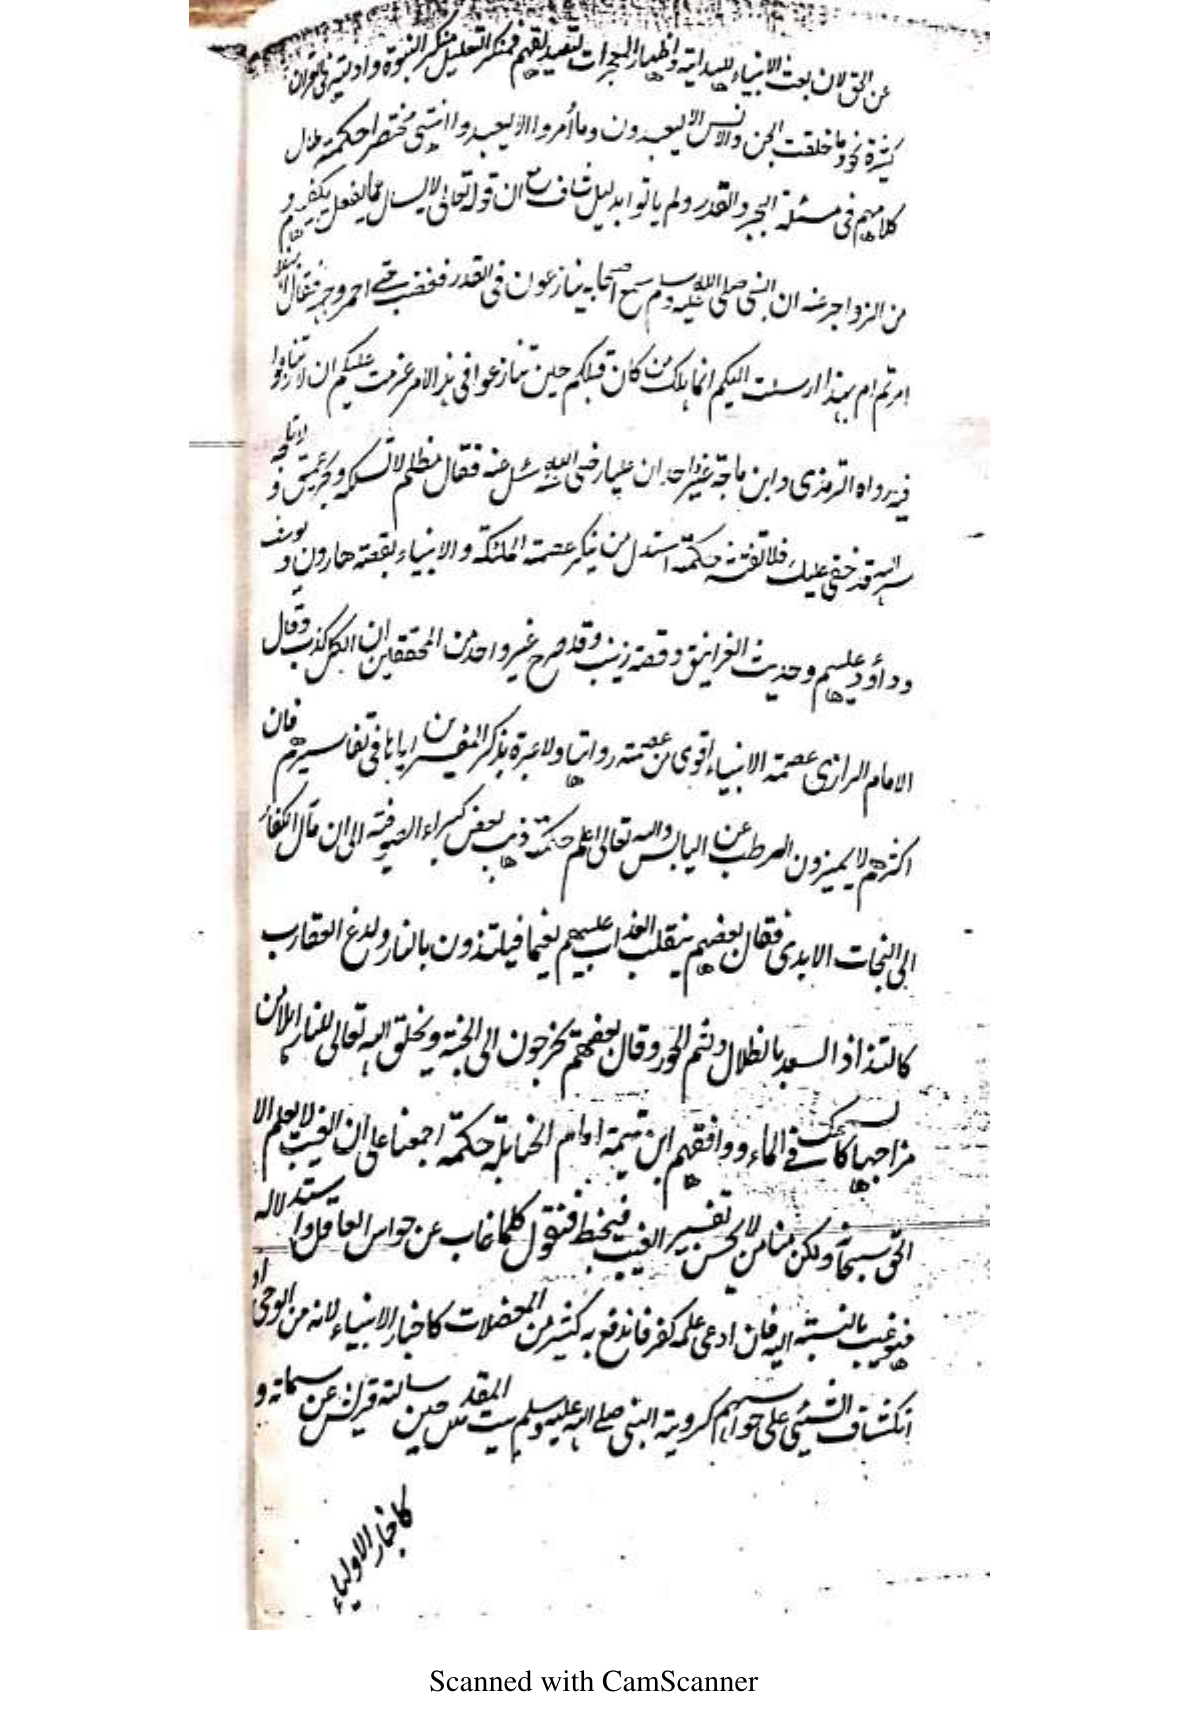 عن الحق لان بعث الانبياء للهداية واظهار المعجرات لتصديقهم فمنكر التعليل منكر النبوة وادلته فى القران
كثيرة نحو وما خلقت الجن والانس الا ليعبدون وما أمروا الا ليعبدوا انتهى مختصرا حكمة طال
كلامهم فى مسئلة الجبر والقدر ولم ياتوا بدليل شاف مع ان قوله تعالى لا يسال عما يفعل يكفيهم و
من الزواجر عنه ان النبى صلى الله عليه وسلم سمع اصحابه يتنازعون فى القدر فغضب حتى احمر وجهه فقال ابهذا
امرتم ام بهذا ارسلت اليكم انما هلك من كان قبلكم حين تنازعوا فى هذا الامر عزمت عليكم ان لا تنازعوا
فيه رواه الترمذى وابن ماجة غير واحد ان عليا رضى الله عنه سئل عنه فقال مظلم لا تسلكه وبحر عميق لا تلجه و
سر الله قد خفى عليك فلا تفتشه حكمة استدل من ينكر عصمة الملئكة والانبياء بقصة هاروت و يوسف
وداؤد عليهم وحديث الغرانيق وقصة زينب وقد صرح غير واحد من المحققين ان الكل كذب وقال
الامام الرازى عصمة الانبياء اقوى من عصمة رواتها ولا عبرة بذكر المفسرين اياها فى تفاسيرهم فان
اكثرهم لا يميزون الرطب عن اليابس والله تعالى اعلم حكمة ذهب بعض كبراء الصوفية الى ان مآل الكفار
الى النجات الابدى فقال بعضهم ينقلب العذاب عليهم نعيما فيلتذون بالنار ولدغ العقارب
كالتذاذ السعد بالظلال ولثم الحور وقال بعضهم يخرجون الى الجنة ويخلق الله تعالى للنار اهلا من
مزاجها كالسمك فى الماء ووافقهم ابن تيمية امام الحنابلة حكمة اجمعنا على ان الغيب لا يعلم الا
الحق سبحانه ولكن منا من لا يحسن تفسير الغيب فيخبط فنقول كلما غاب عن حواس العاقل واستدلاله
فهو غيب بالنسبة اليه فان ادعى علمه كفر فاندفع به كثير من المعضلات كاخبار الانبياء لانه من الوحى او
انكشاف الشيئى على حواسهم كروية النبى صلى الله عليه وسلم بيت المقدس حين سالته قريش عن سماته و
كاخبار الاولياء
Scanned with CamScanner